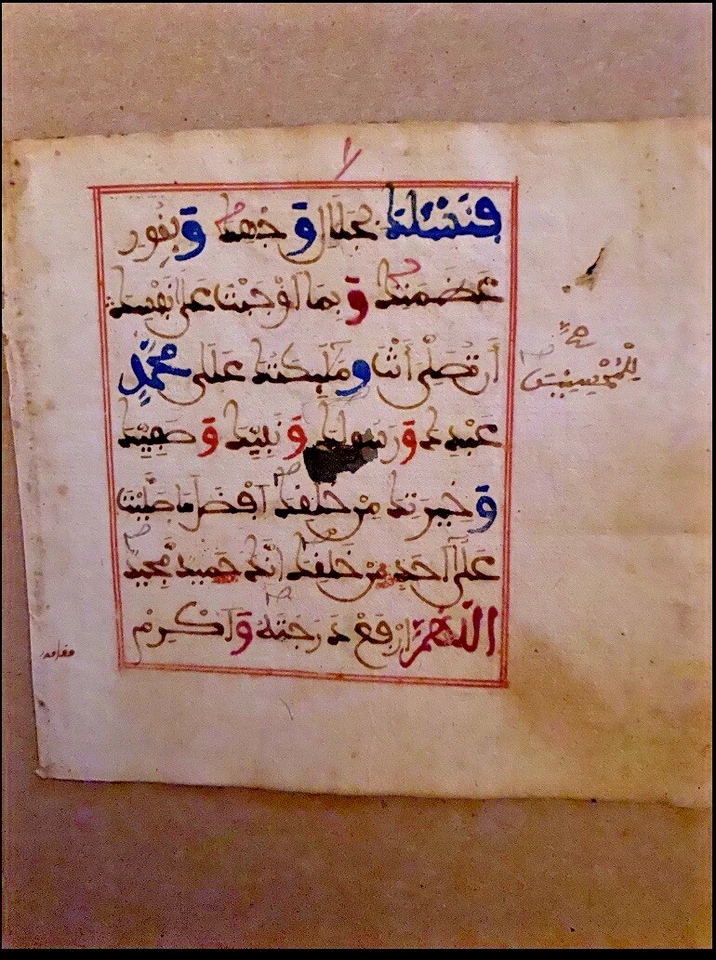 فنسئلك بجلال وجهك وبنور
عضمتك وبما أوجبت على نفسك
أن تصلي أنت وملئكتك على محمد
عبدك ورسولك ونبيك وصفيك
وخيرتك من خلقك أفضل ما صليت
على أحد من خلقك إنك حميد مجيد
اللهم ارفع درجته وأكرم
مقامه